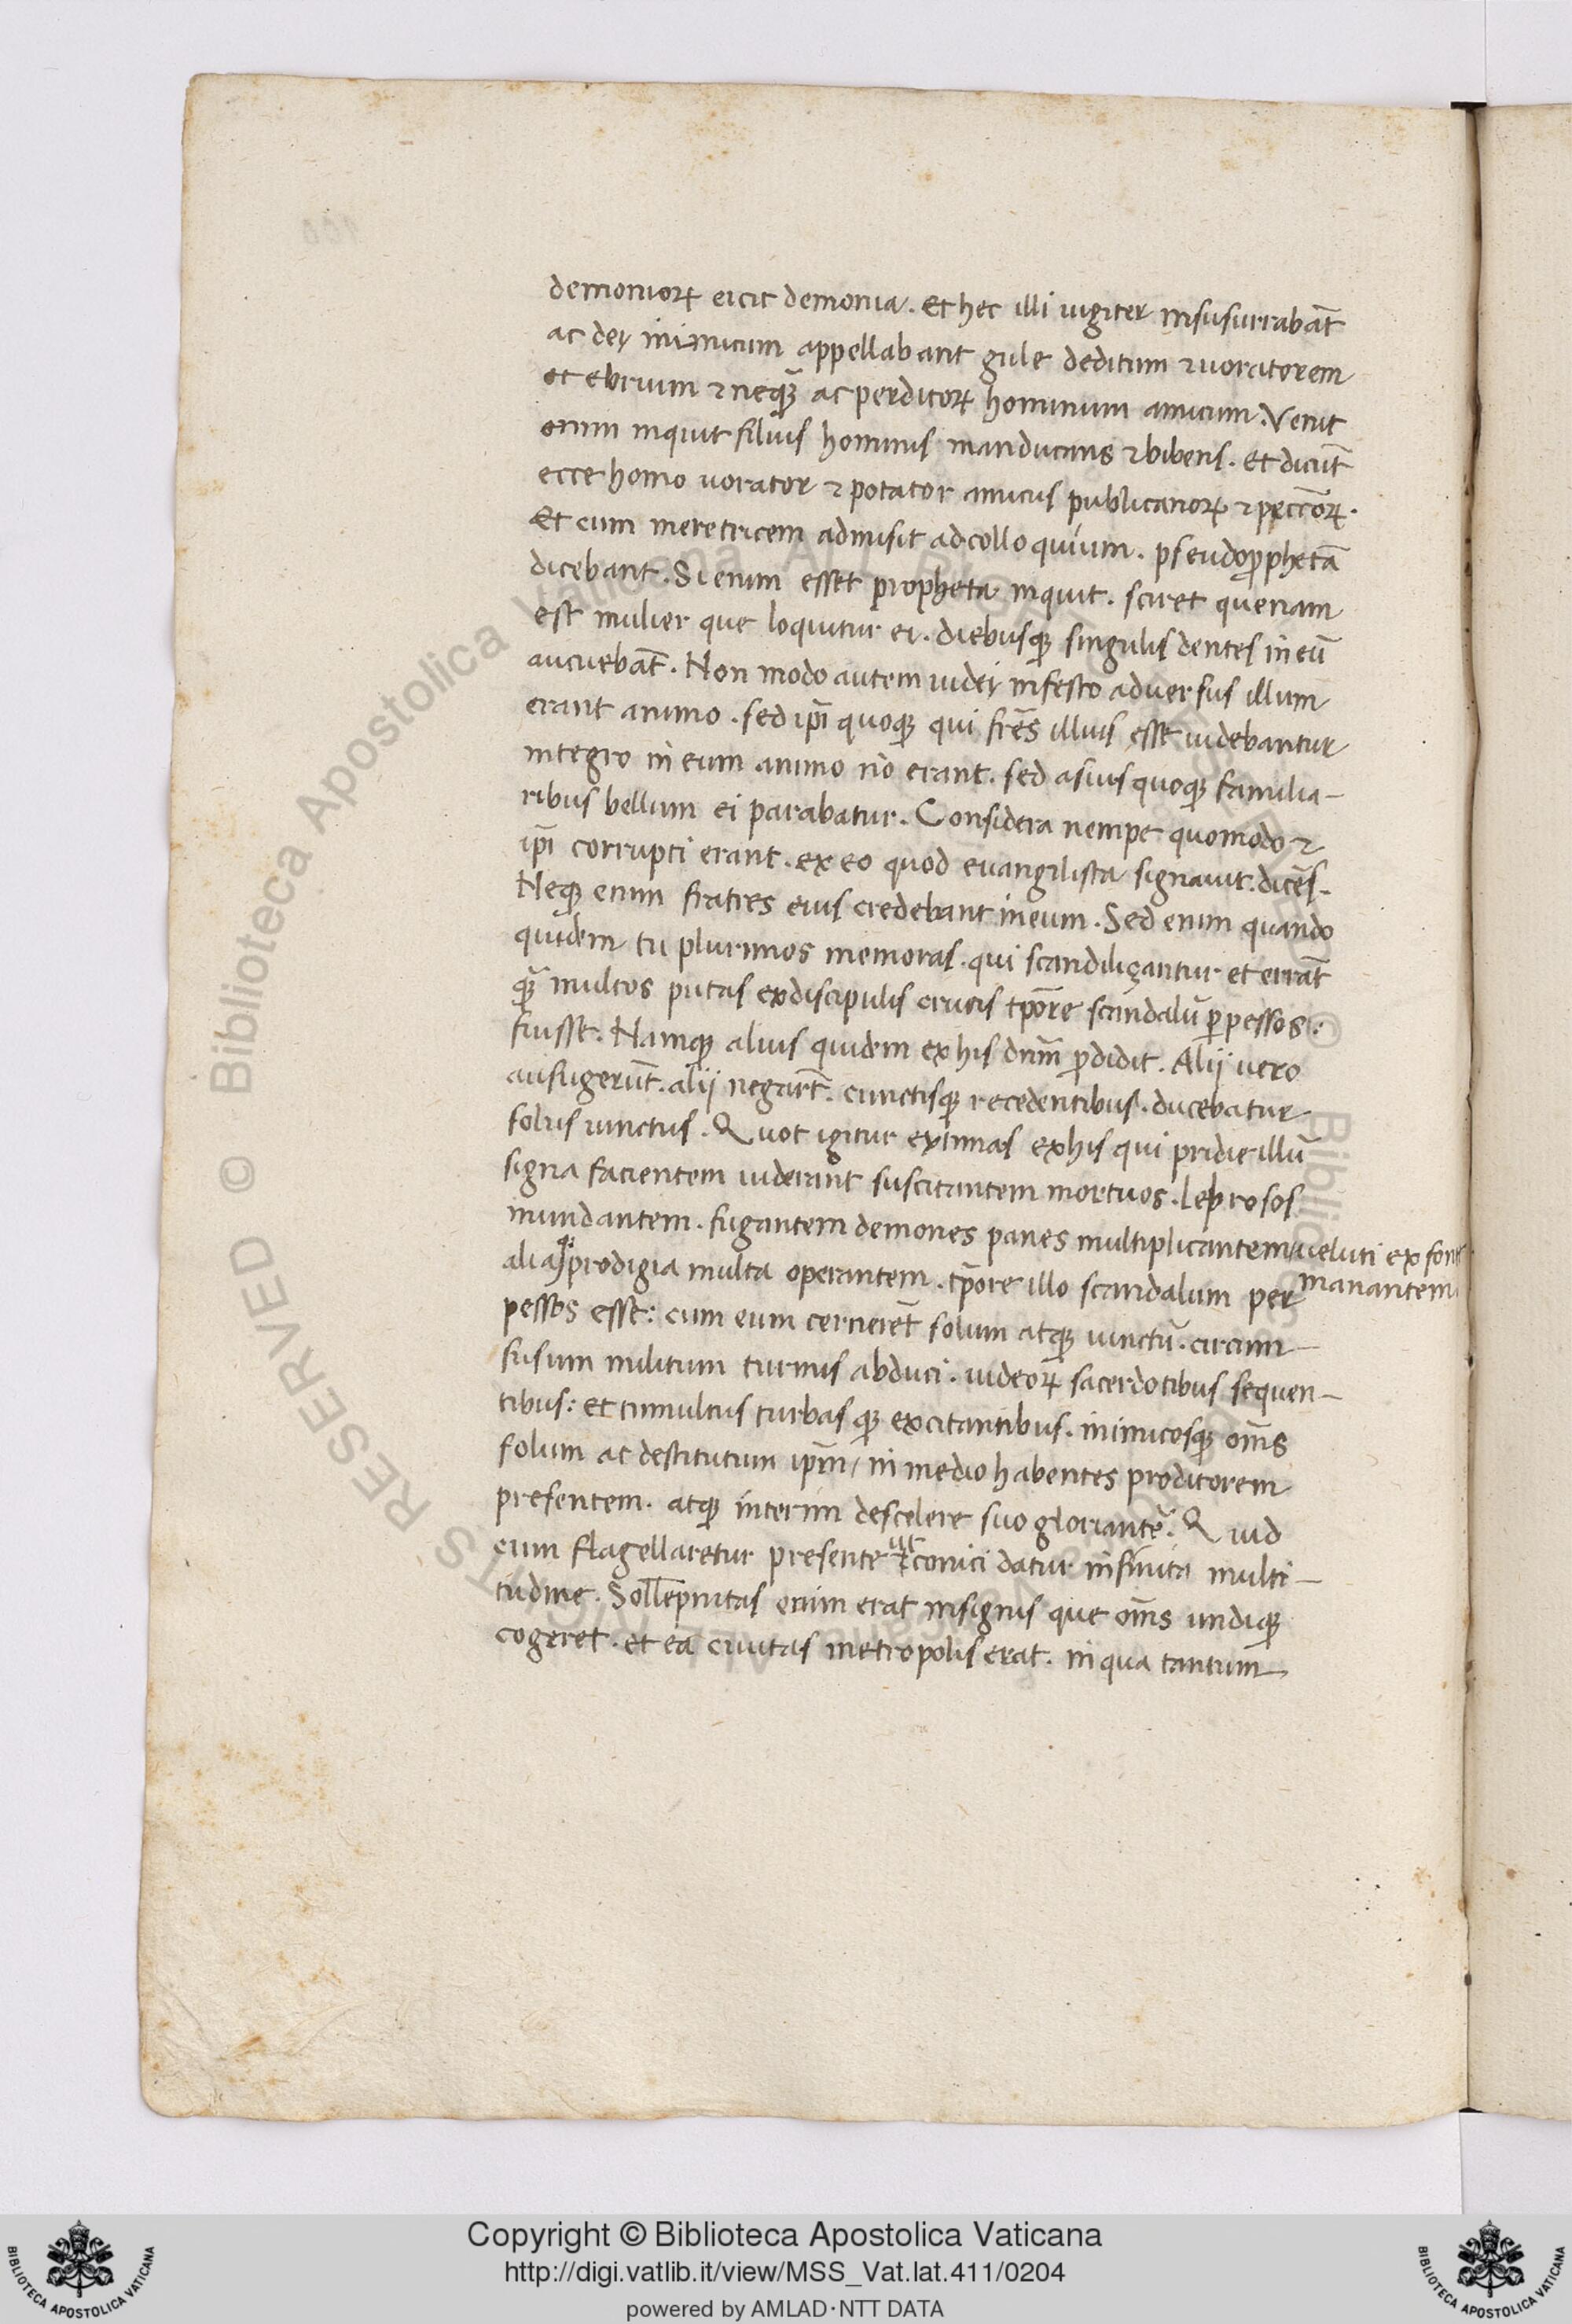 demonioꝝ eicit demonia. Et hec illi iugiter insusurrabāt
ac dei inimicum appellabant gule deditum ⁊ uoratorem
et ebrium ⁊ nequā ac perditoꝝ hominum amicum. Venit
enim inquit filius hominis manducans ⁊ bibens. Et dicūt
ecce homo uorator ⁊ potator amicus publicanoꝝ ⁊ peccōꝝ.
Et cum meretricem admisit ad colloquium. pseudoꝓphetā
dicebant. Si enim esset propheta inquit. sciret quenam
est mulier que loquitur ei. diebusqꝫ singulis dentes in eū
aucuebāt. Non modo autem iudei infesto aduersus illum
erant animo. sed ip̄i quoqꝫ qui fr̄es illius esse uidebantur
integro in eum animo nō erant. sed a suis quoqꝫ familia-
ribus bellum ei parabatur. Considera nempe quomodo ⁊
ip̄i corrupti erant. ex eo quod euangelista signauit. dicēs.
Neqꝫ enim fratres eius credebant in eum. Sed enim quando
quidem tu plurimos memoras. qui scandilizantur et errāt
quā multos putas ex discipulis crucis tp̄ore scandalū ꝑpessos:
fuisse. Namqꝫ alius quidem ex his dnm̄ ꝓdidit. Alij uero
aufugerūt. alij negarūt. cunctisqꝫ recedentibus. ducebatur
solus iunctus. Quot igitur extimas ex his qui pridie illū
signa facientem uiderant suscitantem mortuos. leprosos
mundantem. fugantem demones panes multiplicantem/ueluti ex fonte
manantem
aliaqꝫ prodigia multa operantem. tp̄ore illo scandalum per
pessos esse: cum eum cernerēt solum atqꝫ uinctū. circum-
fusum militum turmis abduci. iudeoꝝ sacerdotibus sequen-
tibus: et tumultus turbasqꝫ excitantibus. inimicosqꝫ om̄s
solum ac destitutum ip̄m/ in medio habentes proditorem
presentem. atqꝫ interim de scelere suo gloriantē. Quid
cum flagellaretur presente ut conici datur infinita multi-
tudine. Sollepnitas enim erat insignis que om̄s undiqꝫ
cogeret. et ea ciuitas metropolis erat. in qua tantum
Copyright © Biblioteca Apostolica Vaticana
http://digi.vatlib.it/view/MSS_Vat.lat.411/0204
powered by AMLAD·NTT DATA